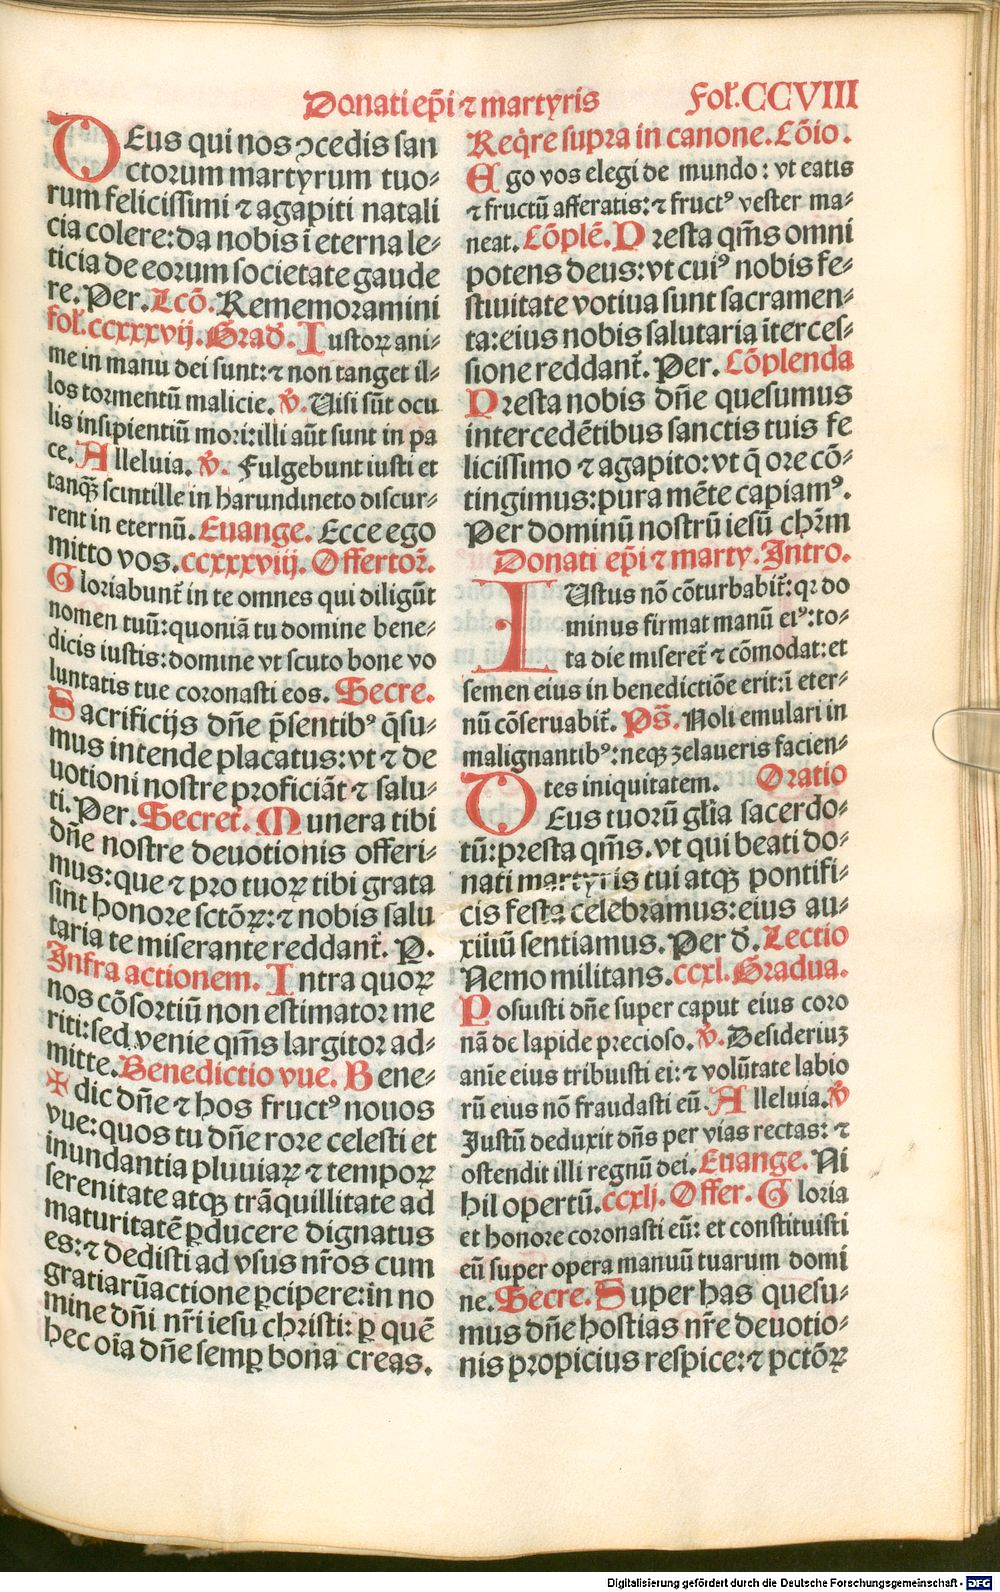 Donati ep̄i ⁊ martyris Fol̄.CCVIII
DEus qui nos ꝯcedis san
ctorum martyrum tuo⸗
rum felicissimi ⁊ agapiti natali
cia colere:da nobis ī eterna le⸗
ticia de eorum societate gaude
re.Per.Lcō.Rememoramini
fol̄.ccxxxvij.Grad̄.Iustoꝝ ani⸗
me in manu dei sunt:⁊ non tanget il⸗
los tormentū malicie.℣.Uisi sūt ocu
lis insipientiū mori:illi aūt sunt in pa
ce.Alleluia.℣. Fulgebunt iusti et
tanqꝫ scintille in harundineto discur⸗
rent in eternū.Euange.Ecce ego
mitto vos.ccxxxviij.Offertor̄.
Gloriabunt̄ in te omnes qui diligūt
nomen tuū:quoniā tu domine bene⸗
dicis iustis:domine vt scuto bone vo
luntatis tue coronasti eos. Secre.
Sacrificijs dn̄e p̄sentibꝰ q̄su⸗
mus intende placatus:vt ⁊ de
uotioni nostre proficiāt ⁊ salu⸗
ti.Per.Secret̄.Munera tibi
dn̄e nostre deuotionis offeri⸗
mus:que ⁊ pro tuoꝝ tibi grata
sint honore sctōꝝ:⁊ nobis salu
taria te miserante reddant̄. P.
Infra actionem. Intra quoꝝ
nos cōsortiū non estimator me
riti:sed venie qm̄s largitor ad⸗
mitte.Benedictio vue. Bene⸗
✠ dic dn̄e ⁊ hos fructꝰ nouos
vue:quos tu dn̄e rore celesti et
inundantia pluuiaꝝ ⁊ tempoꝝ
serenitate atqꝫ trāquillitate ad
maturitatē ꝑducere dignatus
es:⁊ dedisti ad vsus nr̄os cum
gratiarūactione ꝑcipere:in no
mine dn̄i nr̄i iesu christi: ꝑ quē
hec oīa dn̄e semꝑ bona creas.
Req̄re supra in canone.Cōio.
Ego vos elegi de mundo: vt eatis
⁊ fructū afferatis:⁊ fructꝰ vester ma⸗
neat.Cōplē.Presta qm̄s omni
potens deus:vt cuiꝰ nobis fe⸗
stiuitate votiua sunt sacramen⸗
ta:eius nobis salutaria īterces⸗
sione reddant̄. Per. Cōplenda
Presta nobis dn̄e quesumus
intercedētibus sanctis tuis fe
licissimo ⁊ agapito:vt q̄ ore cō⸗
tingimus:pura mēte capiamꝰ.
Per dominū nostrū iesū chr̄m
Donati ep̄i ⁊ marty.Intro.
IUstus nō cōturbabit̄:qꝛ do
minus firmat manū eiꝰ:to⸗
ta die miseret̄ ⁊ cōmodat:et
semen eius in benedictiōe erit:ī eter⸗
nū cōseruabit̄. Ps̄.Noli emulari in
malignantibꝰ:neqꝫ zelaueris facien⸗
tes iniquitatem. Oratio
DEus tuorū gl̄ia sacerdo⸗
tū:presta qm̄s.vt qui beati do⸗
nati martyris tui atqꝫ pontifi⸗
cis festa celebramus:eius au⸗
xiliū sentiamus.Per d̄.Lectio
Nemo militans.ccxl.Gradua.
Posuisti dn̄e super caput eius coro
nā de lapide precioso.℣.Desideriuꝫ
anīe eius tribuisti ei:⁊ volūtate labio
rū eius nō fraudasti eū.Alleluia.℣
Justū deduxit dn̄s per vias rectas: ⁊
ostendit illi regnū dei.Euange.Ni
hil opertū.ccxlj.Offer.Gloria
et honore coronasti eū: et constituisti
eū super opera manuū tuarum domi
ne.Secre.Super has quesu⸗
mus dn̄e hostias nr̄e deuotio⸗
nis propicius respice:⁊ pctōꝝ
Digitalisierung gefördert durch die Deutsche Forschungsgemeinschaft - DFG